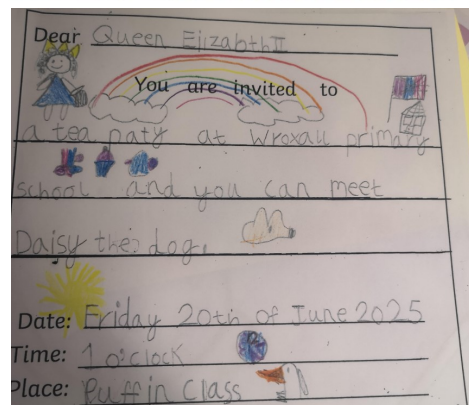 Dear Queen EjizabthII
You are invited to
a tea paty at Wroxall primary
school and you can meet
Daisy the dog.
Date: Friday 20th of June 2025
Time: 1 o'clock
Place: Puffin Class